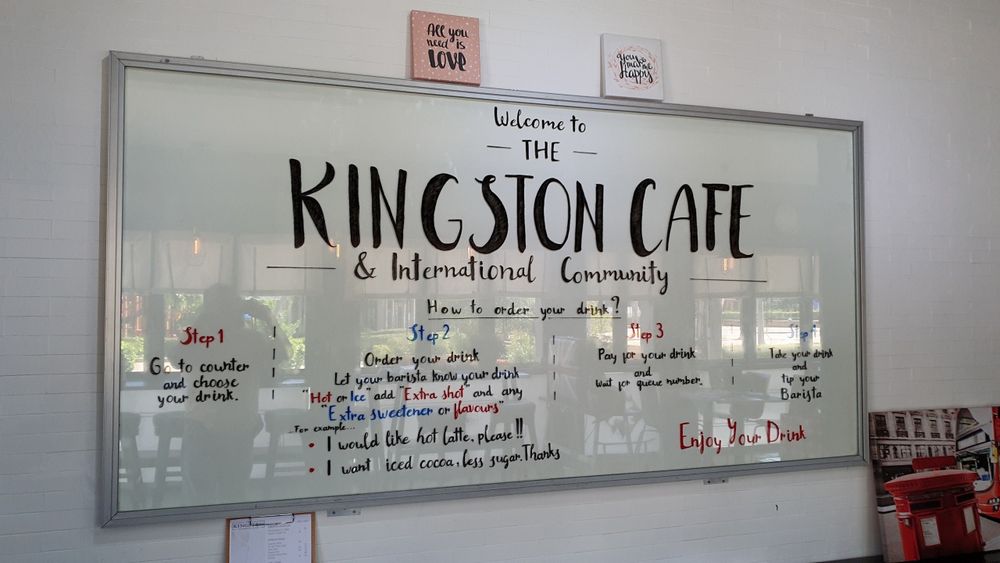 All you
need is
LOVE
You
make me
Happy
Welcome to
— THE —
KINGSTON CAFE
& International Community
How to order your drink?
Step 1
Go to counter
and choose
your drink.
Step 2
Order your drink
Let your barista know your drink
"Hot or Ice" add "Extra shot" and any
"Extra sweetener or flavours"
For example...
• I would like hot latte, please!!
• I want iced cocoa, less sugar. Thanks
Step 3
Pay for your drink
and
wait for queue number.
Step 4
Take your drink
and
tip your
Barista
Enjoy Your Drink
KINGSTON